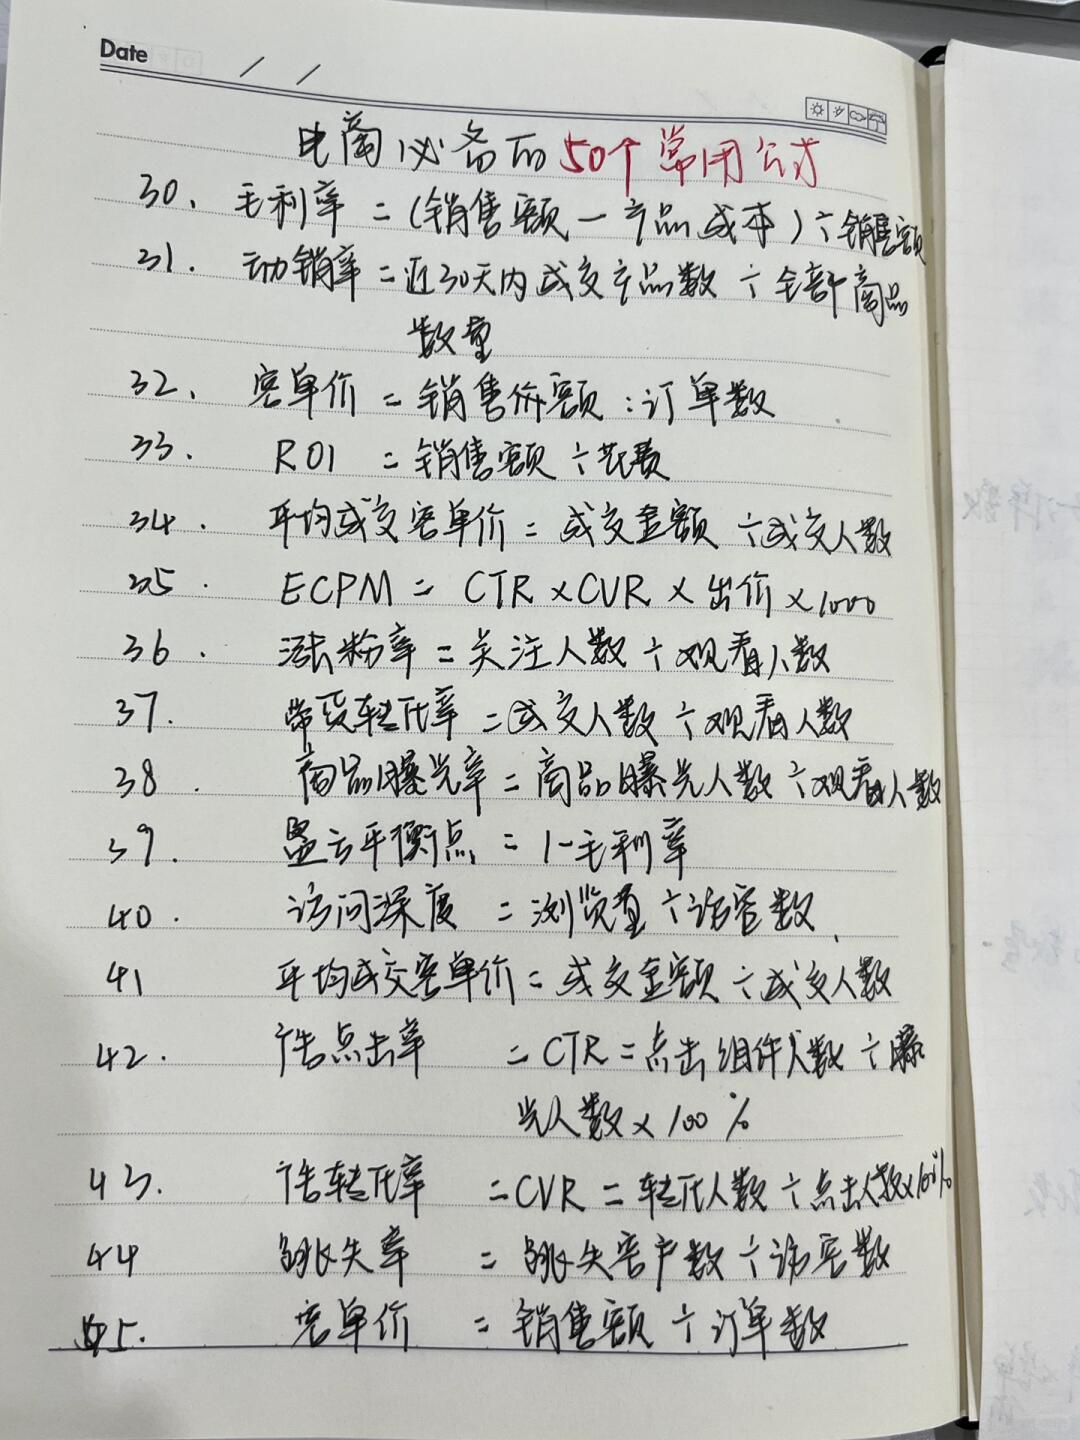 Date / /
电商必备的50个常用公式
30. 毛利率 = (销售额 - 产品成本) ÷ 销售额
31. 动销率 = 近30天内成交产品数 ÷ 全部商品
数量
32. 客单价 = 销售价额 : 订单数
33. ROI = 销售额 ÷ 花费
34. 平均成交客单价 = 成交金额 ÷ 成交人数
35. ECPM = CTR × CVR × 出价 × 1000
36. 涨粉率 = 关注人数 ÷ 观看人数
37. 带货转化率 = 成交人数 ÷ 观看人数
38. 商品曝光率 = 商品曝光人数 ÷ 观看人数
39. 盈亏平衡点 = 1 - 毛利率
40. 访问深度 = 浏览量 ÷ 访客数
41 平均成交客单价 = 成交金额 ÷ 成交人数
42. 广告点击率 = CTR = 点击组件人数 ÷ 曝
光人数 × 100%
43. 广告转化率 = CVR = 转化人数 ÷ 点击人数 × 100%
44 跳失率 = 跳失客户数 ÷ 访客数
45. 客单价 = 销售额 ÷ 订单数